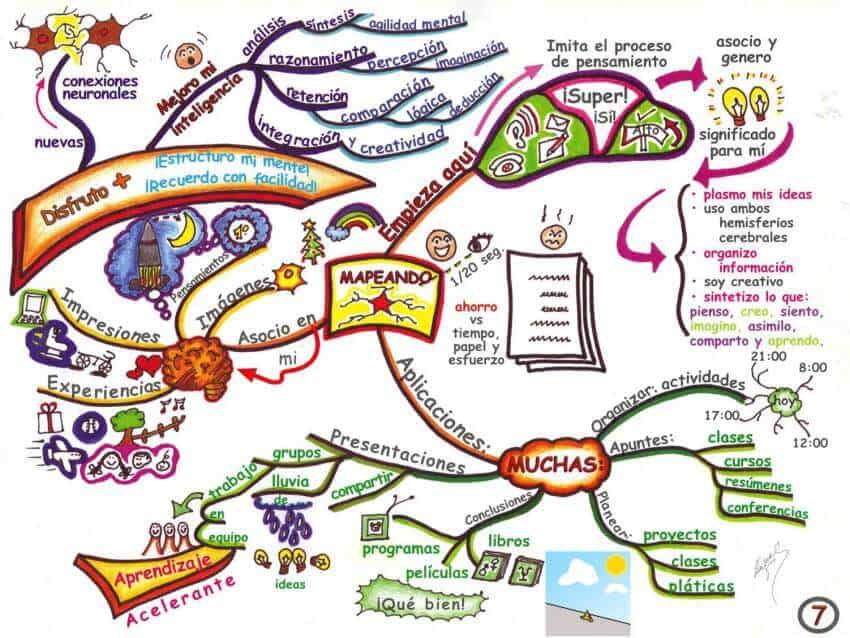 conexiones
neuronales
nuevas
Mejoro mi
inteligencia
análisis
síntesis
agilidad mental
razonamiento
percepción
imaginación
retención
comparación
lógica
deducción
integración y creatividad
Disfruto +
¡Estructuro mi mente!
¡Recuerdo con facilidad!
Empieza aquí
Imita el proceso
de pensamiento
¡Super!
¡Sí!
ALTO
asocio y
genero
significado
para mí
• plasmo mis ideas
• uso ambos
hemisferios
cerebrales
• organizo
información
• soy creativo
• sintetizo lo que:
pienso, creo, siento,
imagino, asimilo,
comparto y aprendo.
MAPEANDO
1/20 seg.
ahorro
vs
tiempo,
papel y
esfuerzo
Asocio en
mi
Pensamientos
1º
Imágenes
Impresiones
Experiencias
Aplicaciones:
MUCHAS:
Organizar: actividades
hoy
21:00
8:00
17:00
12:00
Apuntes:
clases
cursos
resúmenes
conferencias
Planear:
proyectos
clases
pláticas
Conclusiones
libros
películas
programas
¡Qué bien!
Presentaciones
grupos
trabajo
en
equipo
lluvia
de
ideas
compartir
Aprendizaje
Acelerante
7